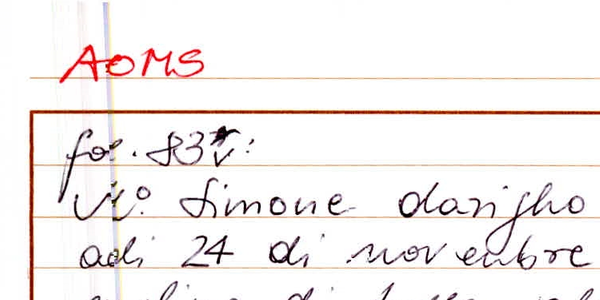 AOMS
fol. 83v:
Mo. Simone darigho
adi 24 di novembre